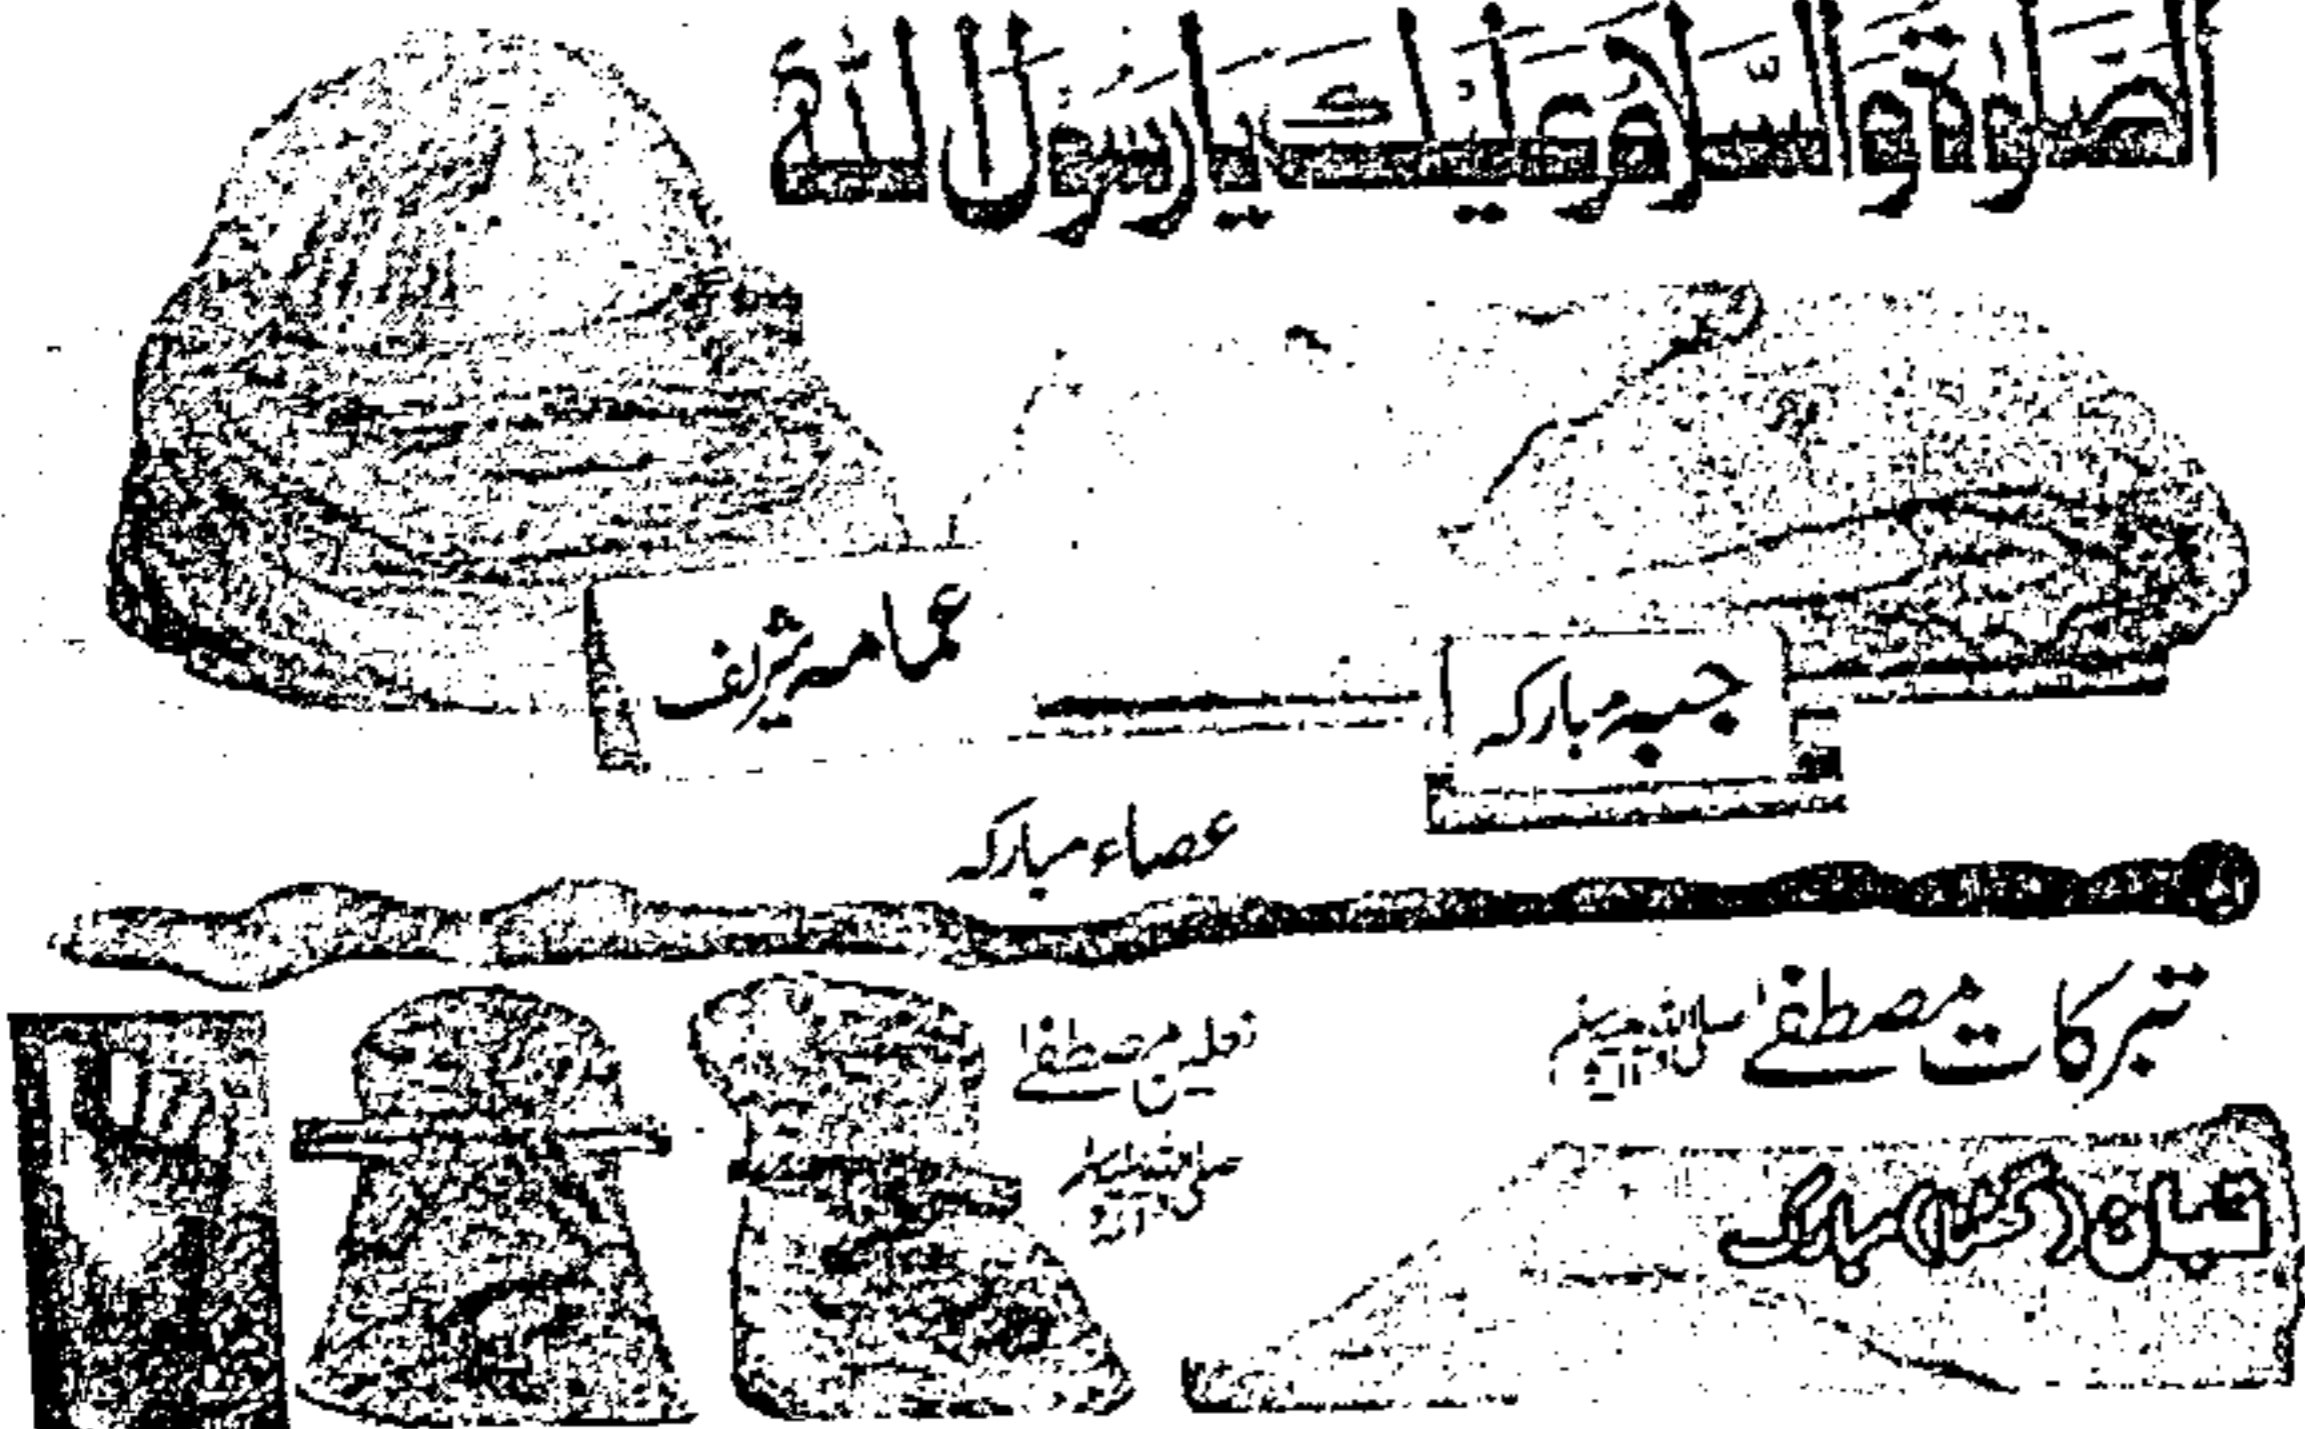 الصلوٰۃ والسلام علیک یا رسول اللہ
عمامہ شریف
جبہ مبارکہ
عصاء مبارکہ
تبرکات مصطفےٰ صلی اللہ علیہ وآلہ وسلم
نعلین مصطفےٰ
صلی اللہ علیہ وآلہ وسلم
مبارک